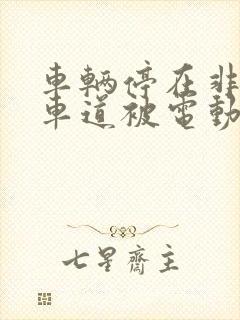 車輛停在非
車道被電動
七星齋主